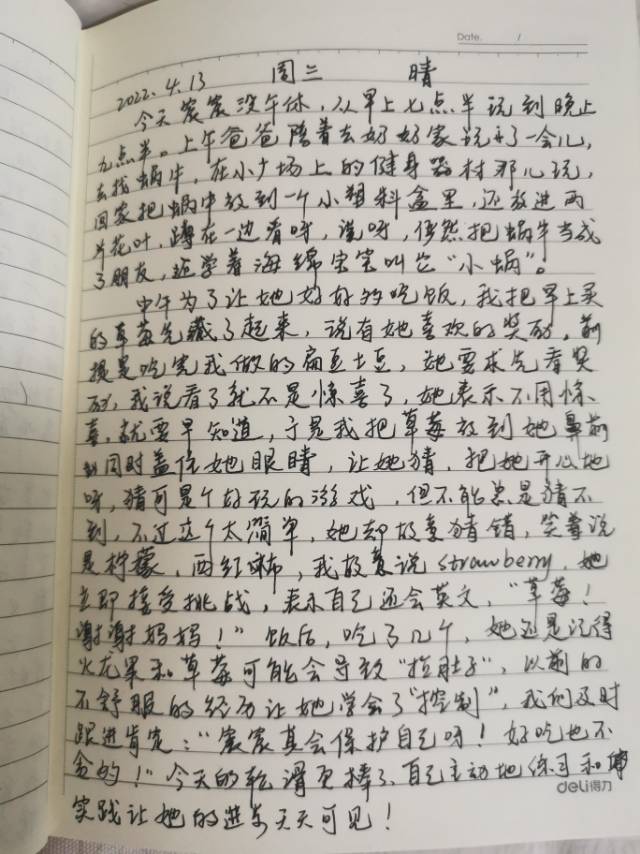 Date. /
2022.4.13 周三 晴
今天宸宸没午休，从早上七点半玩到晚上
九点半。上午爸爸陪着去好好家玩了一会儿，
去找蜗牛，在小广场上的健身器材那儿玩，
回家把蜗牛放到一个小塑料盒里，还放进两
片花叶，蹲在一边看呀，说呀，俨然把蜗牛当成
了朋友，还学着海绵宝宝叫它“小蜗”。
中午为了让她好好的吃饭，我把早上买
的草莓先藏了起来，说有她喜欢的奖励，前
提是吃完我做的扁豆土豆，她要求先看奖
励，我说看了就不是惊喜了，她表示不用惊
喜，就要早知道，于是我把草莓放到她鼻前
同时盖住她眼睛，让她猜，把她开心地
呀，猜可是个好玩的游戏，但不能总是猜不
到，不过这个太简单，她却故意猜错，笑着说
是柠檬，西红柿，我故意说strawberry，她
立即接受挑战，表示自己还会英文，“草莓！
谢谢妈妈！”饭后，吃了几个，她还是记得
火龙果和草莓可能会导致“拉肚子”，以前的
不舒服的经历让她学会了“控制”，我们及时
跟进肯定：“宸宸真会保护自己呀！好吃也不
贪的！”今天的轮滑更棒了，自己主动地练习和
实践让她的进步天天可见！
deli得力